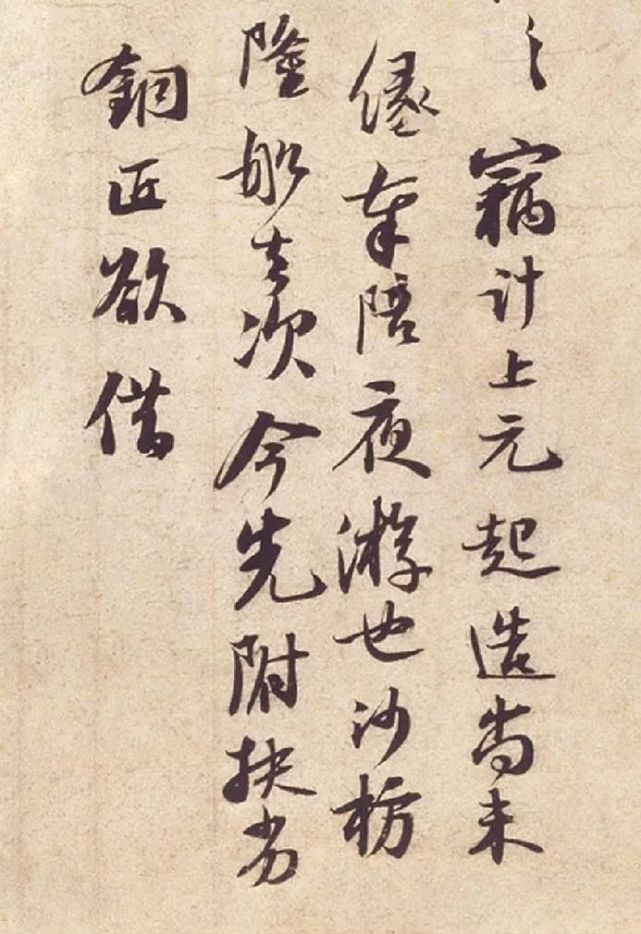 竊計上元起造尚未
緣奉陪夜游也沙枋
隆船去次今先附扶劣
銅匠欲借